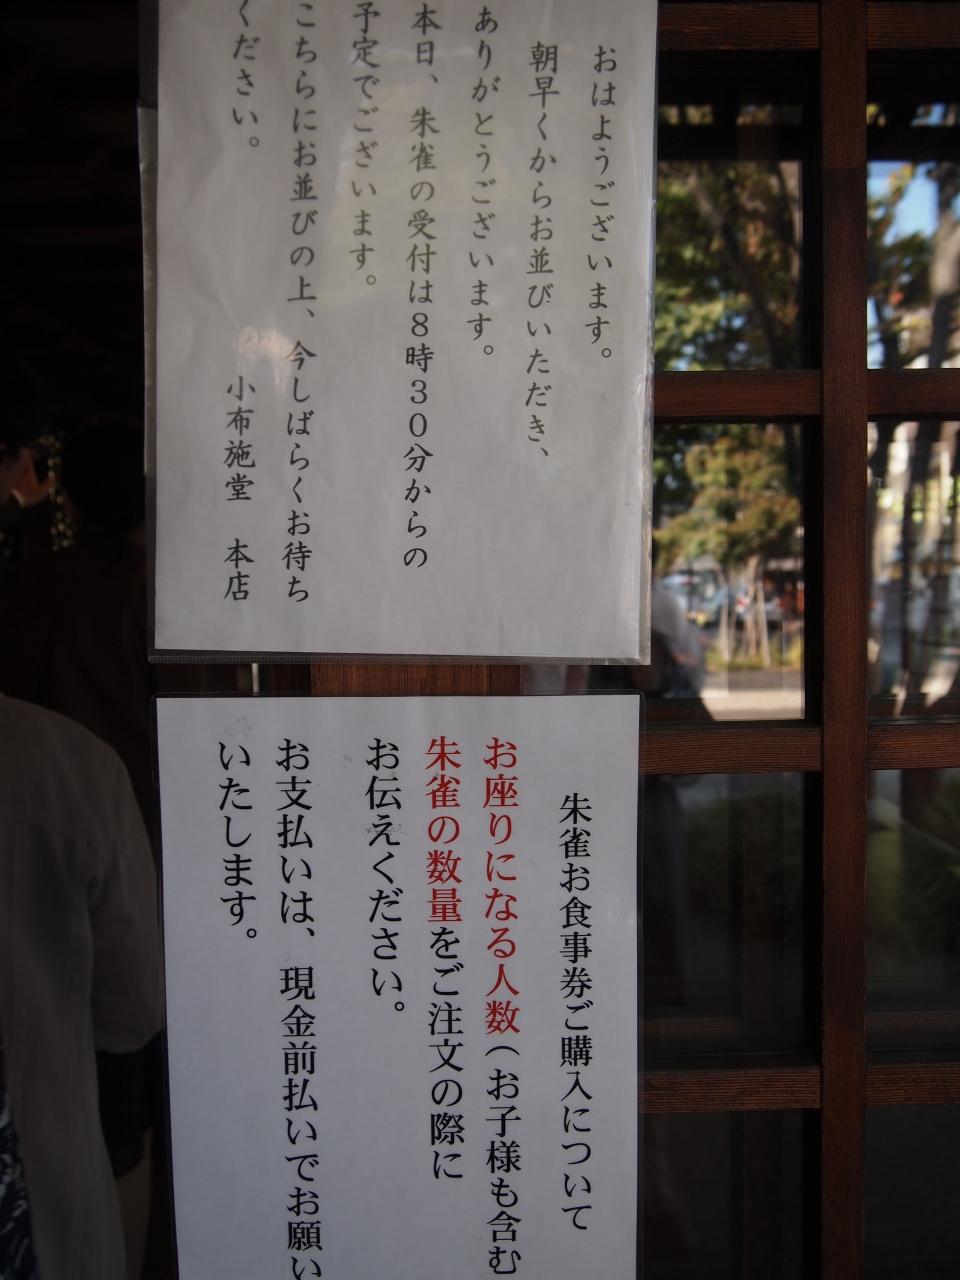 おはようございます。
朝早くからお並びいただき、
ありがとうございます。
本日、朱雀の受付は８時３０分からの
予定でございます。
こちらにお並びの上、今しばらくお待ち
ください。
小布施堂　本店
朱雀お食事券ご購入について
お座りになる人数（お子様も含む
朱雀の数量をご注文の際に
お伝えください。
お支払いは、現金前払いでお願い
いたします。